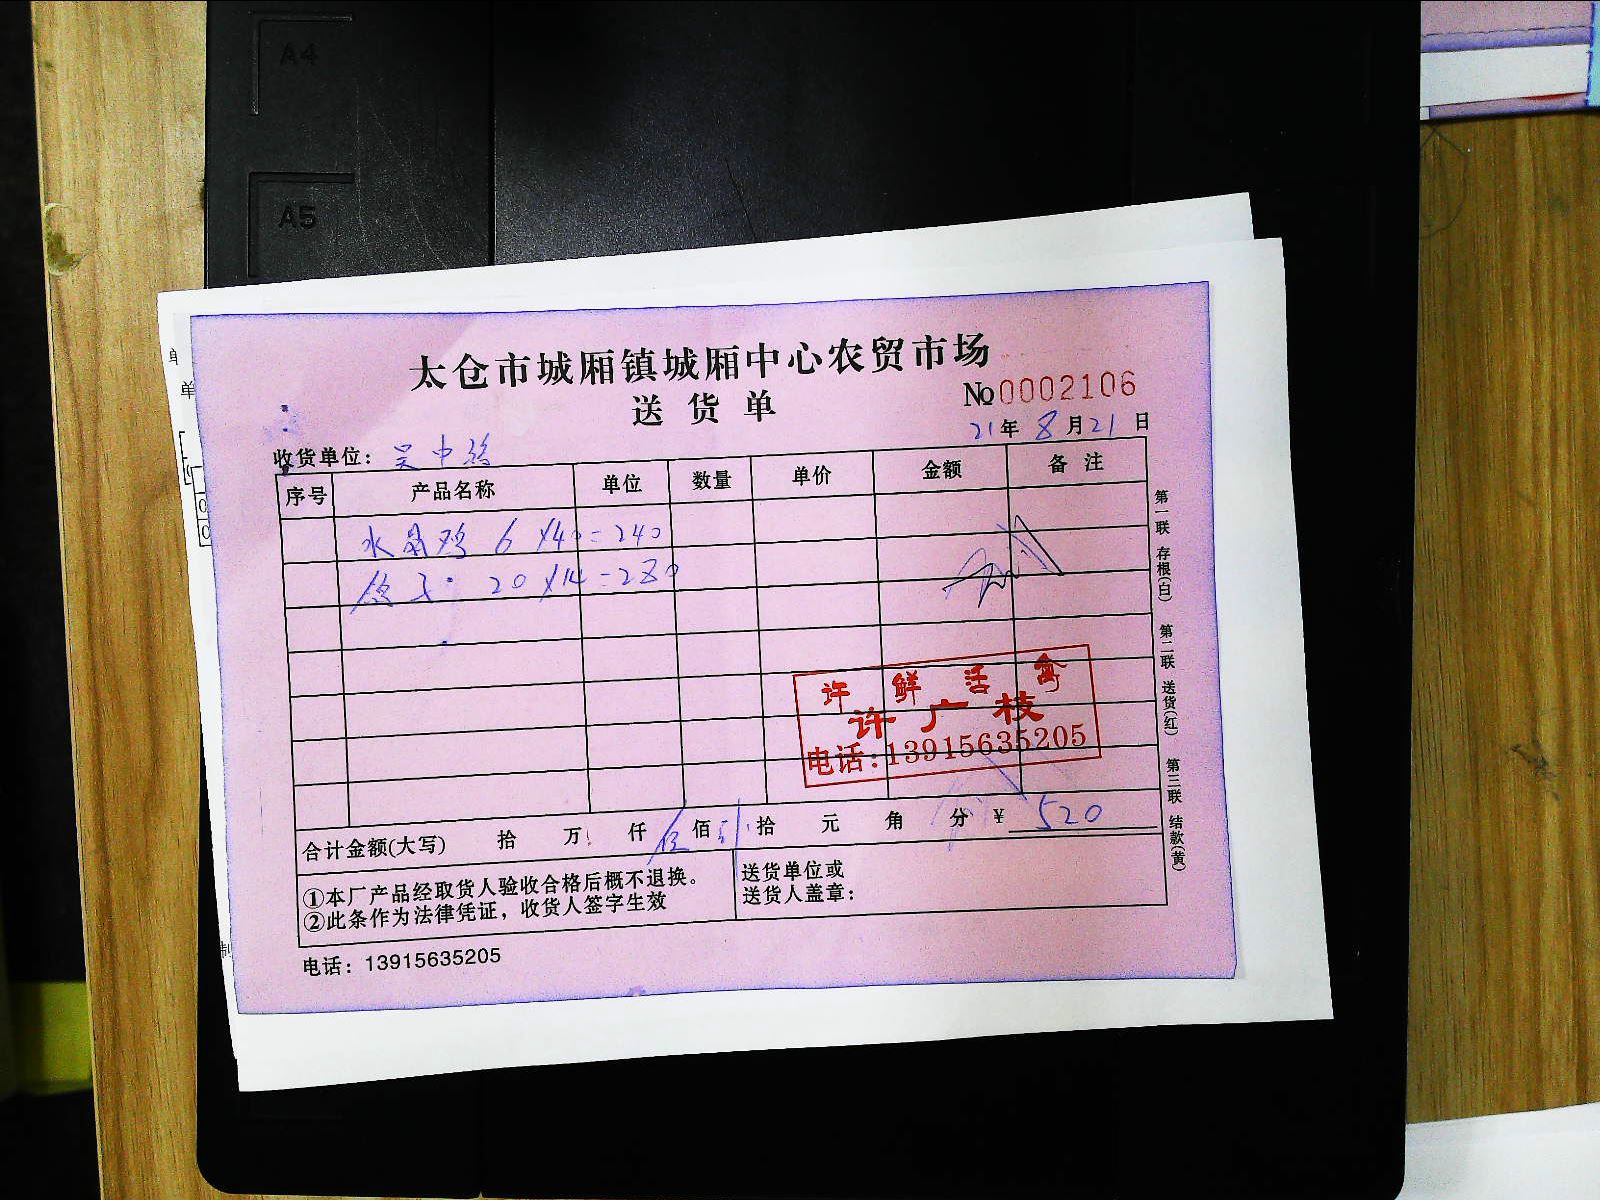 A4
A5
太仓市城厢镇城厢中心农贸市场
送货单
No 0002106
21年8月21日
收货单位：吴中
序号 产品名称 单位 数量 单价 金额 备注
水晶鸡 6×40=240
20×14=280
许鲜活禽
许广枝
电话:13915635205
合计金额(大写) 拾 万 仟 伍佰 拾 元 角 分 ¥ 520
①本厂产品经取货人验收合格后概不退换。
②此条作为法律凭证，收货人签字生效
送货单位或
送货人盖章：
电话：13915635205
第一联 存根(白) 第二联 送货(红) 第三联 结款(黄)